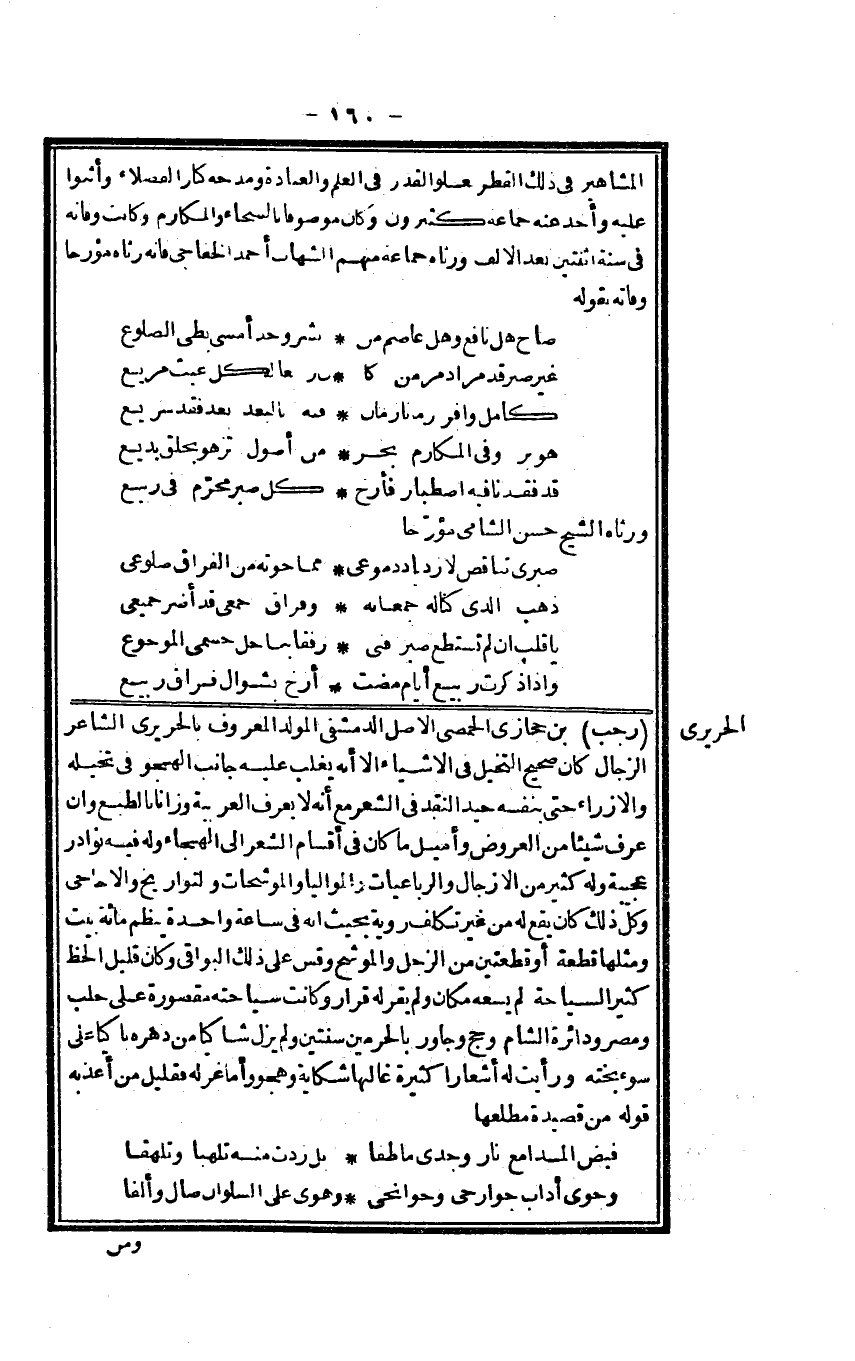 - ١٦٠ -
المشاهير فى ذلك القطر بعلو القدر فى العلم والعبادة ومدحه كبار الفضلاء وأثنوا
عليه وأخذ عنه جماعة كثيرون وكان موصوفا بالسخاء والمكارم وكانت وفاته
فى سنة اثنتين بعد الالف ورثاه جماعة منهم الشهاب أحمد الخفاجى فانه رثاه مؤرخا
وفاته بقوله
صاح هل نافع وهل عاصم من * نشر وجد أمسى بطى الضلوع
غير صبر قد مر اذ مر من كا * ن ربيعا لكل غيث مريع
كامل وافر رمتنا زمان * فيه بالبعد بعد فقد سريع
هو بر وفى المكارم بحر * من أصول تزهو بخلق بديع
قد فقدنا فيه اصطبار فأرخ * كل صبر محرّم فى ربيع
ورثاه الشيخ حسن الشامى مؤرّخا
صبرى تناقص لازدياد دموعى * مما حوته من الفراق ضلوعى
ذهب الذى كنا له جمعا به * وفراق جمعى قد أضر جميعى
ياقلب ان لم تستطع صبر فنى * رفقا بما حل جسمى الموجوع
واذا ذكرت ربيع أيام مضت * أرخ بشوال فراق ربيع
الحريرى
(رجب) بن حجازى الحمصى الاصل الدمشقى المولد المعروف بالحريرى الشاعر
الزجال كان صحيح التخيل فى الاشياء الا أنه يغلب عليه جانب الهجو فى تخيله
والازراء حتى بنفسه جيد النقد فى الشعر مع أنه لا يعرف العربية وزانا بالطبع وان
عرف شيئا من العروض وأميل ما كان فى أقسام الشعر الى الهجاء وله فيه نوادر
عجيبة وله كثير من الازجال والرباعيات والمواليا والموشحات والتواريخ والاحاجى
وكل ذلك كان يقع له من غير تكلف روية بحيث انه فى ساعة واحدة ينظم مائة بيت
ومثلها قطعة أو قطعتين من الزجل والموشح وقس على ذلك البواقى وكان قليل الحظ
كثير السياحة لم يسعه مكان ولم يقر له قرار وكانت سياحته مقصورة على حلب
ومصر ودائرة الشام وحج وجاور بالحرمين سنتين ولم يزل شاكيا من دهره باكيا على
سوء بخته ورأيت له أشعارا كثيرة غالبها شكاية وهجو وأما غزله فقليل من أعذبه
قوله من قصيدة مطلعها
فيض المدامع نار وجدى ما طفا * بل زدت منه تلهبا وتلهفا
وجوى أذاب جوارحى وجوانحى * وهوى على السلوان صال وألفا
ومن